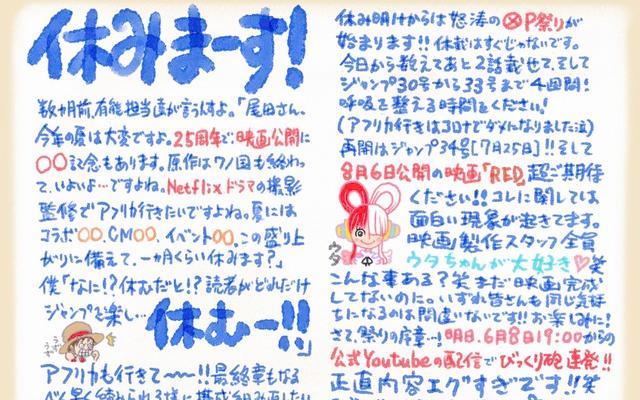 休みまーす!
数ヶ月前、有能担当達が言うんすよ。「尾田さん、
今年の夏は大変ですよ。25周年で、映画公開に
〇〇記念もあります。原作はワノ国も終わっ
て、いよいよ…ですよね。Netflixドラマの撮影
監修でアフリカ行きたいですよね。夏には
コラボ〇〇、CM〇〇、イベント〇〇。この盛り上
がりに備えて、一ヶ月くらい休みます?」
僕「なに!?休むだと!?読者がどれだけ
ジャンプを楽し… 休むー!!」
うずうず
アフリカも行きて〜〜!!最終章もなる
べく早く終われる様に構成組み直したい
休み明けからは怒涛の
P祭りが
始まります!!休載はすぐじゃないです。
今日から数えてあと2話載せて、そして
ジャンプ30号から33号まで4週間!
呼吸を整える時間をください!
(アフリカ行きはコロナでダメになりました泣)
再開はジャンプ34号[7月25日]!!そして
8月6日公開の映画「RED」超ご期待
ください!!コレに関しては
面白い現象が起きてます。
ウタ
映画製作スタッフ全員
ウタちゃんが大好き♡笑
こんな事ある?笑まだ映画完成
してないのに。いずれ皆さんも同じ気持
ちになるのは間違いないです!!お楽しみに!
さて、祭りの序章…!明日、6月8日19:00からの
公式Youtubeの配信でびっくり砲連発!!
正直内容エグすぎです!!笑